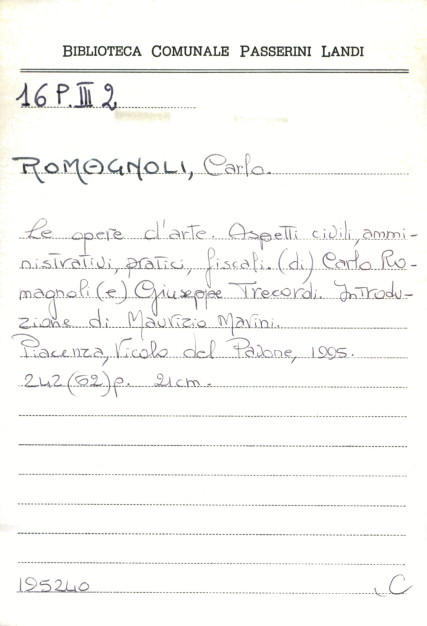 BIBLIOTECA COMUNALE PASSERINI LANDI
16 P.III 2
ROMAGNOLI, Carlo.
Le opere d'arte. Aspetti civili, ammi-
nistrativi, pratici, fiscali. (di) Carlo Ro-
magnoli (e) Giuseppe Trecordi. Introdu-
zione di Maurizio Marini.
Piacenza, Vicolo del Pavone, 1995.
242 (62) p. 21 cm.
195240
C